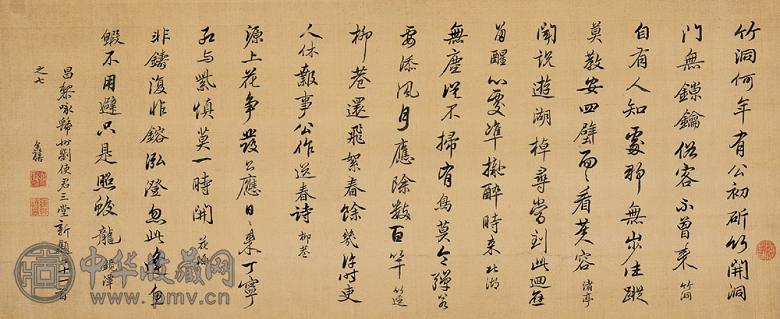 竹洞何年有公初斫竹開洞
門無鎖鑰俗客不曾來 竹洞
自有人知處那無步往蹤
莫教安四壁面面看芙容 渚亭
聞說遊湖棹尋常到此迴應
留醒心處準擬醉時來 北湖
無塵從不掃有鳥莫令彈若
要添風月應除數百竿 竹逕
柳巷還飛絮春餘幾許時吏
人休報事公作送春詩 柳巷
源上花爭發公應日日來丁寧
紅與紫慎莫一時開 花源
非鑄復非鎔泓澄忽此逢魚
鰕不用避只是照蛟龍 鏡潭
昌黎詠虢州劉使君三堂新題二十一首
之七
中华收藏网